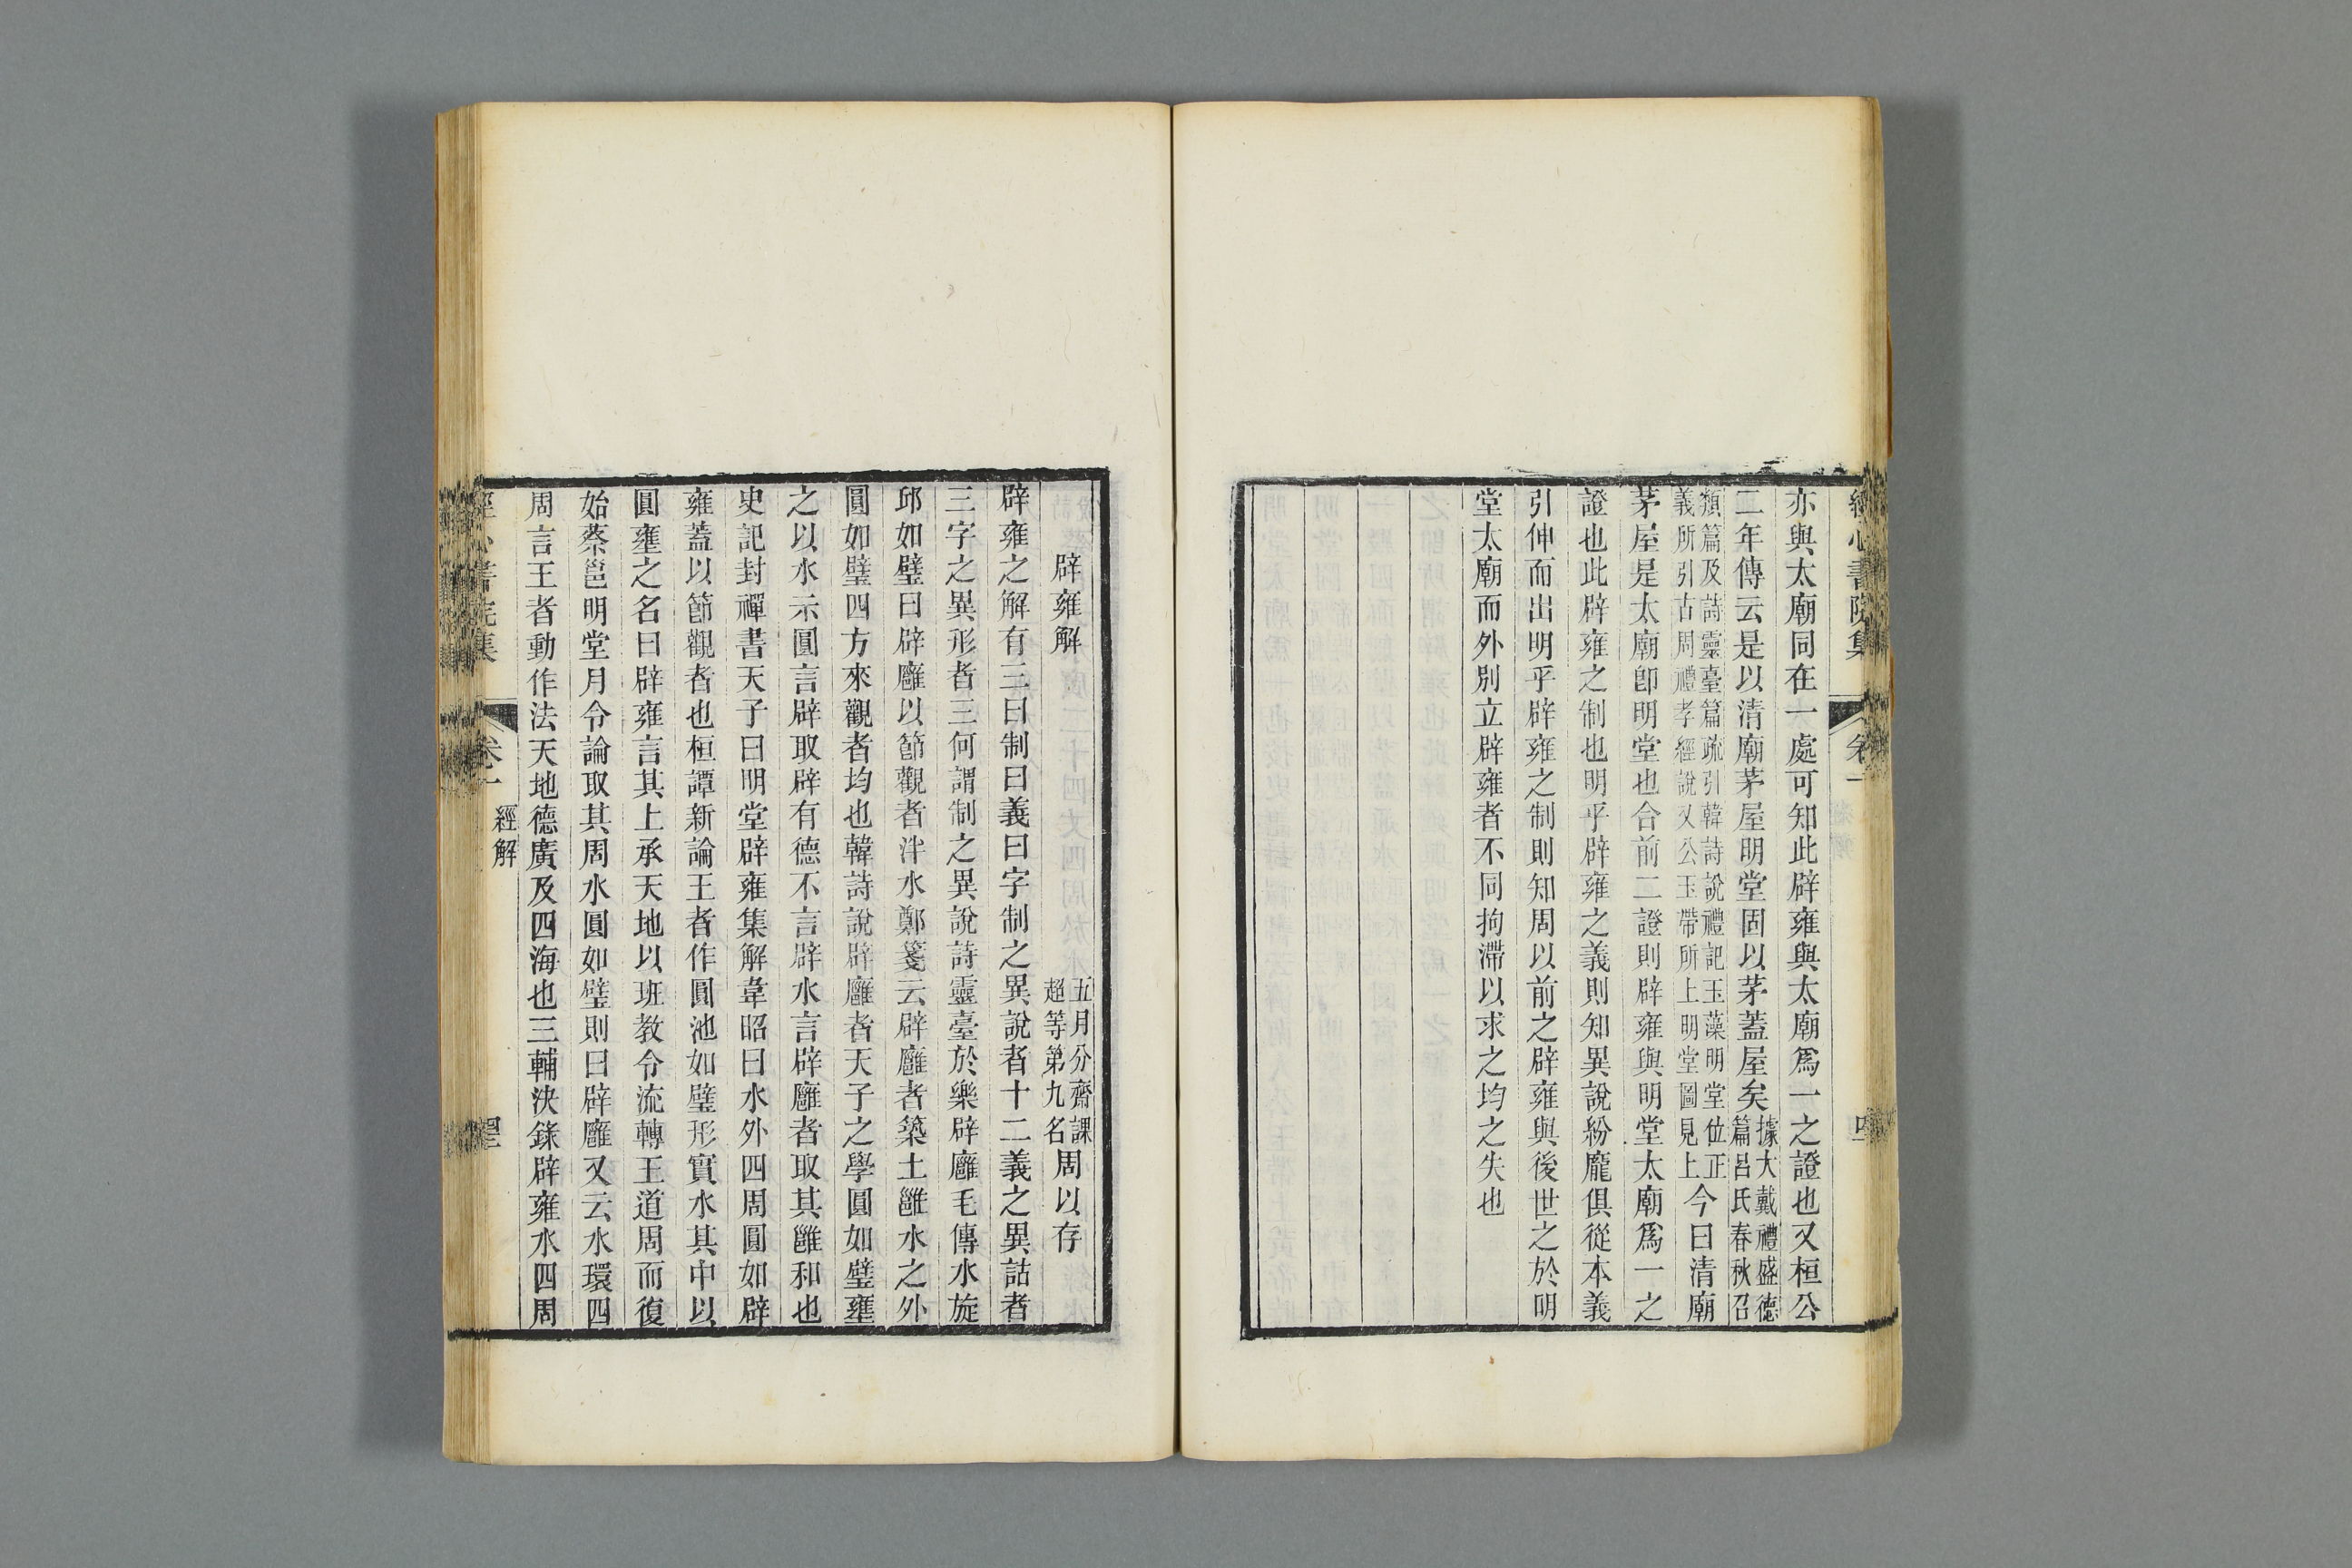 經心書院集 卷一
亦與太廟同在一處可知此辟雍與太廟爲一之證也又桓公
二年傳云是以清廟茅屋明堂固以茅蓋屋矣據大戴禮盛德篇呂氏春秋召
類篇及詩靈臺篇疏引韓詩說禮記玉藻明堂位正義所引古周禮孝經說又公玉帶所上明堂圖見上今曰清廟
茅屋是太廟卽明堂也合前二證則辟雍與明堂太廟爲一之
證也此辟雍之制也明乎辟雍之義則知異說紛龐俱從本義
引伸而出明乎辟雍之制則知周以前之辟雍與後世之於明
堂太廟而外別立辟雍者不同拘滯以求之均之失也
辟雍解 五月分齋課超等第九名 周以存
辟雍之解有三曰制曰義曰字制之異說者十二義之異詁者
三字之異形者三何謂制之異說詩靈臺於樂辟廱毛傳水旋
邱如璧曰辟廱以節觀者泮水鄭箋云辟廱者築土雝水之外
圓如璧四方來觀者均也韓詩說辟廱者天子之學圓如璧壅
之以水示圓言辟取辟有德不言辟水言辟廱者取其雝和也
史記封禪書天子曰明堂辟雍集解韋昭曰水外四周圓如辟
雍蓋以節觀者也桓譚新論王者作圓池如璧形實水其中以
圓壅之名曰辟雍言其上承天地以班教令流轉王道周而復
始蔡邕明堂月令論取其周水圓如璧則曰辟廱又云水環四
周言王者動作法天地德廣及四海也三輔決錄辟雍水四周
經心書院集 卷一 經解